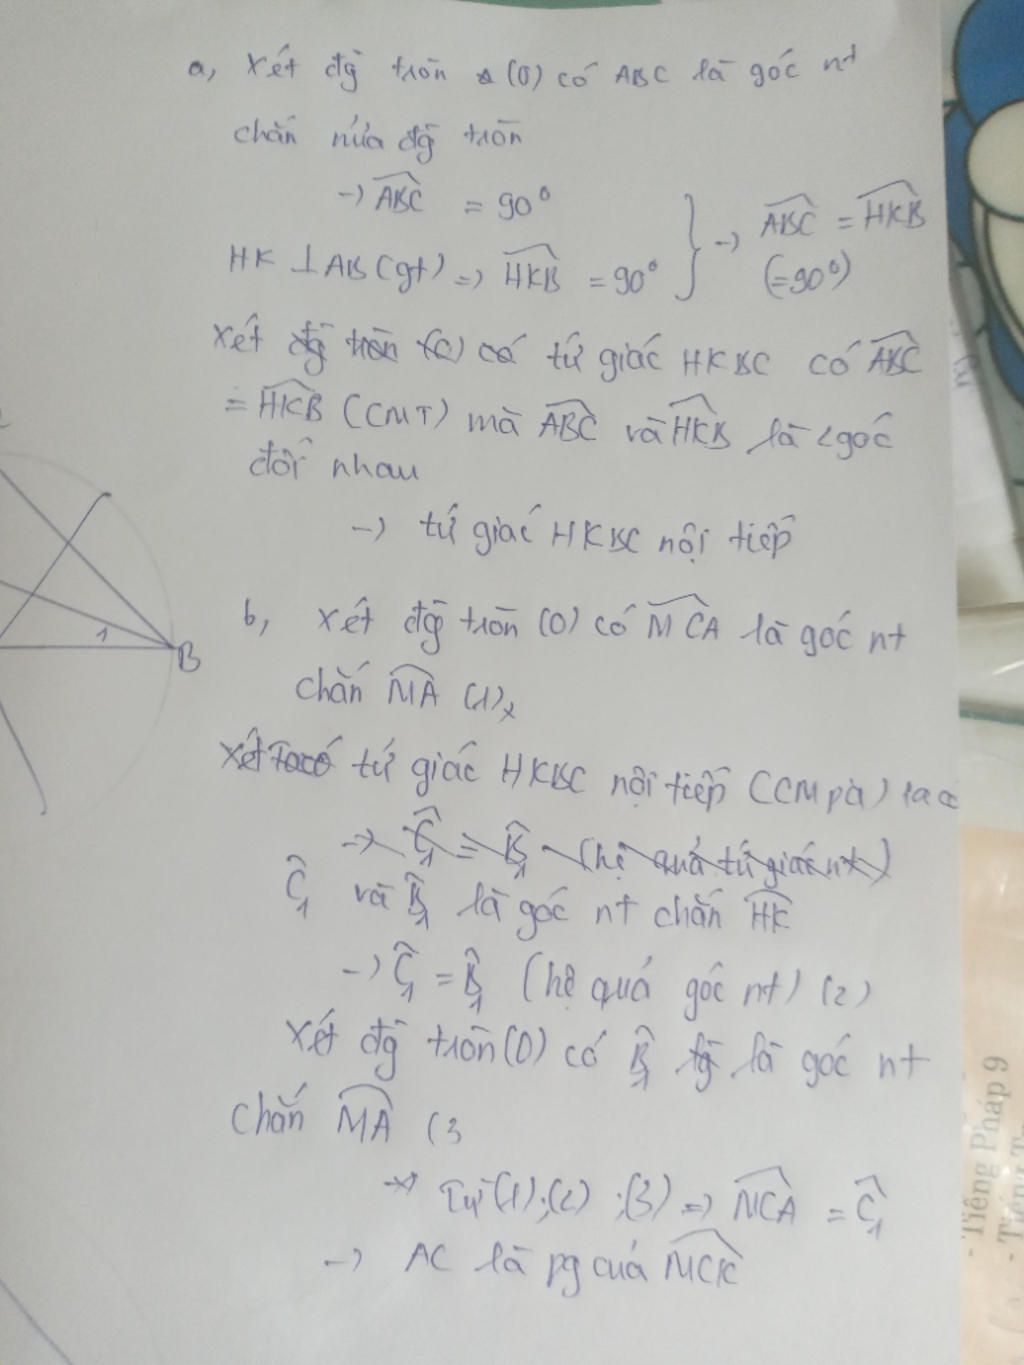 a, Xét đg tròn (O) có ABC là góc nt
chắn nửa đg tròn
-> ABC = 90°
HK ⊥ AB (gt) => HKB = 90° } -> ABC = HKB
(=90°)
Xét tứ giác HKBC có ABC
= HKB (CMT) mà ABC và HKB là 2 góc
đối nhau
-> tứ giác HKBC nội tiếp
b, Xét đg tròn (O) có MCA là góc nt
chắn MA (1)
tứ giác HKBC nội tiếp (CM pa)
-> C1 = B1 (hệ quả tứ giác nt)
C1 và B1 là góc nt chắn HK
-> C1 = B1 (hệ quả góc nt) (2)
Xét đg tròn (O) có B1 là góc nt
chắn MA (3
Từ (1);(2);(3) => MCA = C1
-> AC là pg của MCK
1
B
- Tiếng Pháp 9